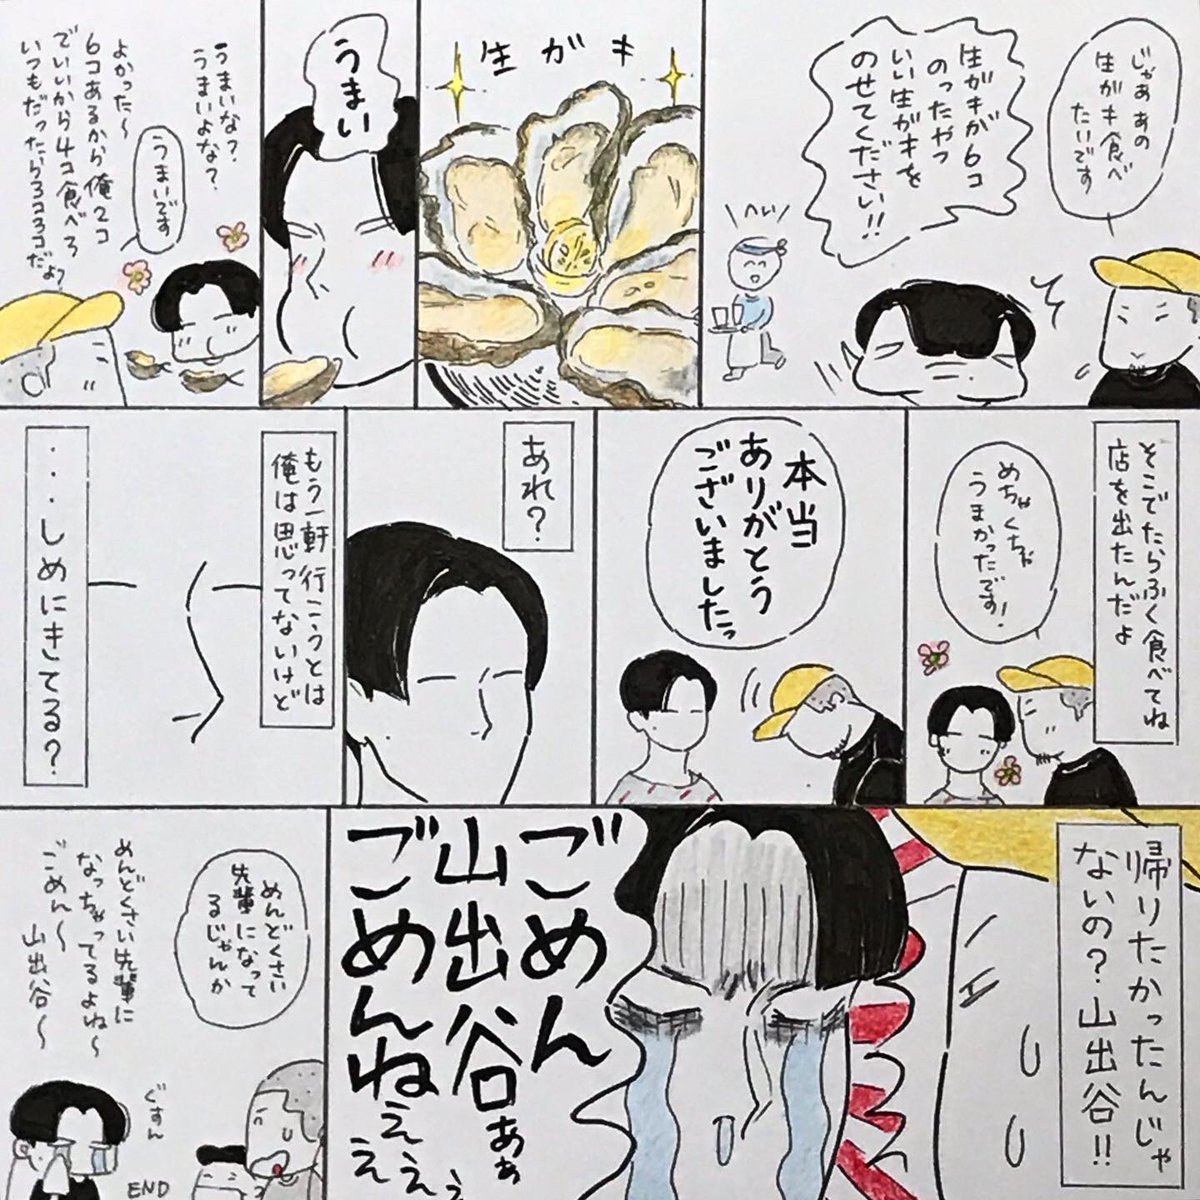 じゃああの
生ガキ食べ
たいです
生ガキが6コ
のったやつ
いい生ガキを
のせてください!!
へい
生ガキ
うまい
うまいな?
うまいよな?
うまいです
よかった〜
6コあるから俺2コ
でいいから4コ食べろ
いつもだったら3コ3コだよ
そこでたらふく食べてね
店を出たんだよ
めちゃくちゃ
うまかったです!
本当
ありがとう
ございましたっ
あれ?
もう一軒行こうとは
俺は思ってないけど
・・・しめにきてる?
帰りたかったんじゃ
ないの?山出谷!!
ごめん
山出谷ぁぁ
ごめんねぇぇぇぇ
めんどくさい
先輩になって
るじゃんか
めんどくさい先輩に
なっちゃってるよね〜
ごめん〜
山出谷〜
ぐすん
END